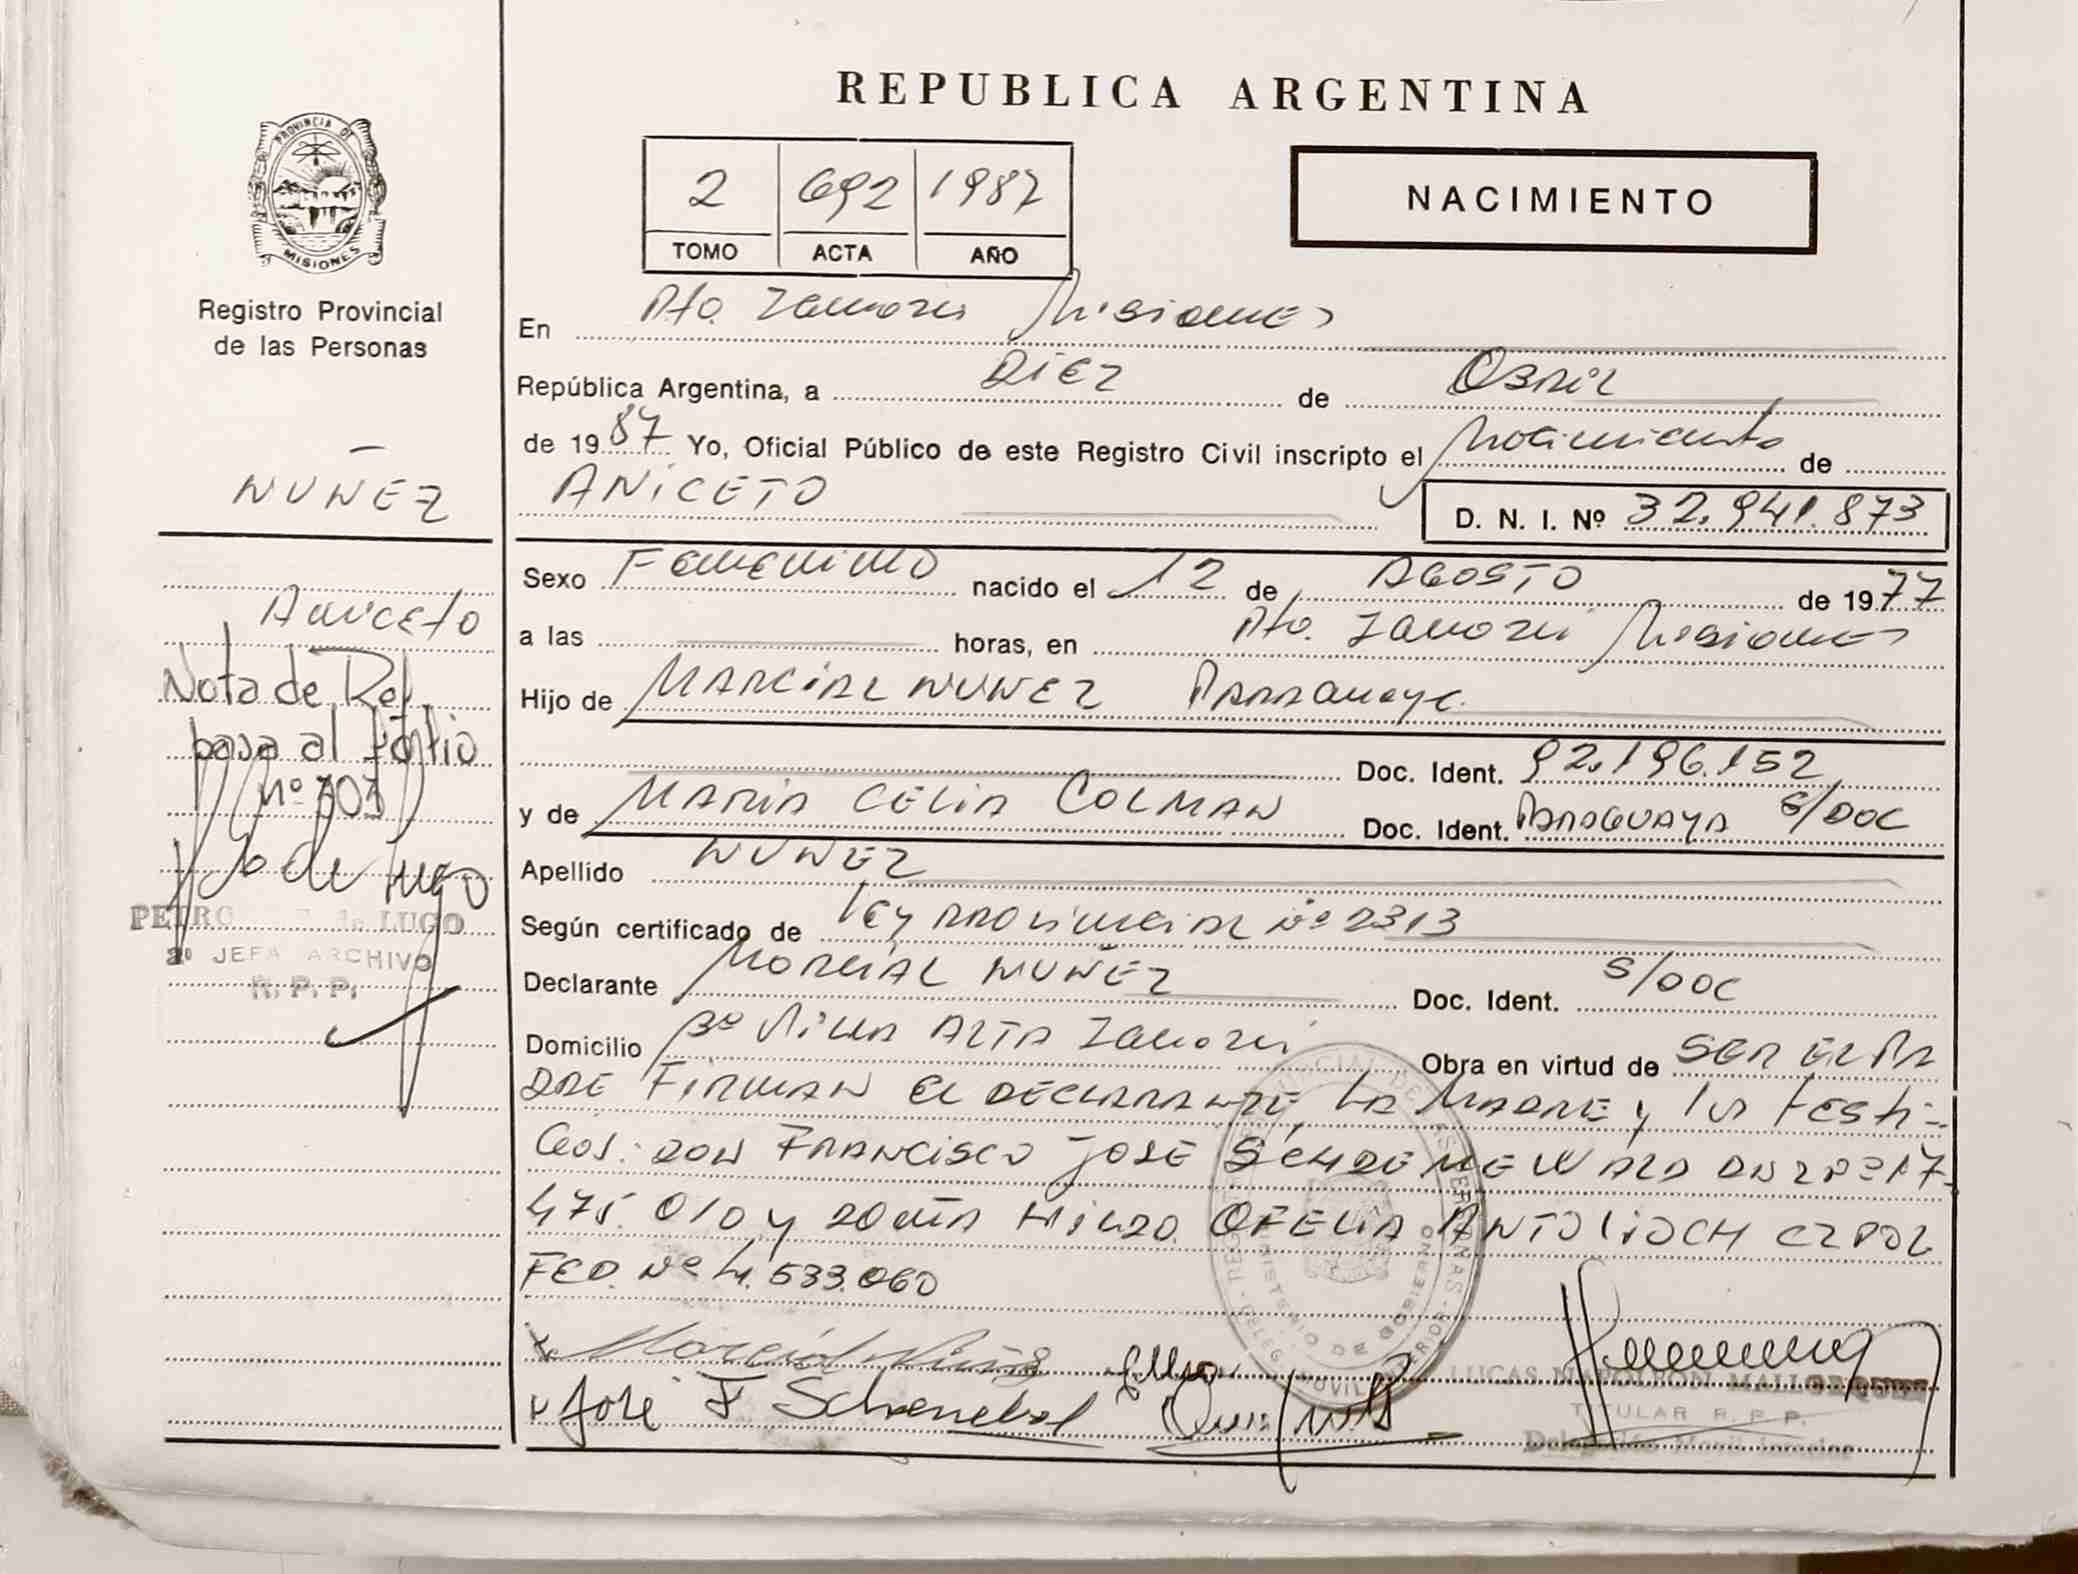 REPUBLICA ARGENTINA
PROVINCIA DE
MISIONES
Registro Provincial
de las Personas
2 692 1987
TOMO ACTA AÑO
NACIMIENTO
En Pto. Misiones
República Argentina, a DIEZ de Abril
de 1987 Yo, Oficial Público de este Registro Civil inscripto el Nacimiento de
ANICETO
D. N. I. Nº 32.941.873
NUÑEZ
Aniceto
Nota de Ref.
pasa al Folio
Nº 707
de Lugo
PETRO de LUGO
2º JEFA ARCHIVO
R. P. P.
Sexo FEMENINO nacido el 12 de AGOSTO de 1977
a las horas, en Pto. Misiones
Hijo de MARCIAL NUNEZ Paraguayo
Doc. Ident. 92.196.152
y de MARIA CELIA COLMAN Doc. Ident. PARAGUAYA S/DOC
Apellido NUNEZ
Según certificado de LEY PROVINCIAL Nº 2313
Declarante MARCIAL NUÑEZ Doc. Ident. S/DOC
Domicilio Bº VILLA ALTA Obra en virtud de SER EL PA
DRE FIRMAN EL DECLARANTE, LA MADRE y los TESTI-
GOS: DON FRANCISCO JOSE 17.
475.010 y DOÑA HILDA OFELIA POL
FED. Nº 4.533.060
Marcial
José F
LUCAS NAPOLEON
TITULAR R. P. P.
Delegación Movil Interior
MINISTERIO DE GOBIERNO